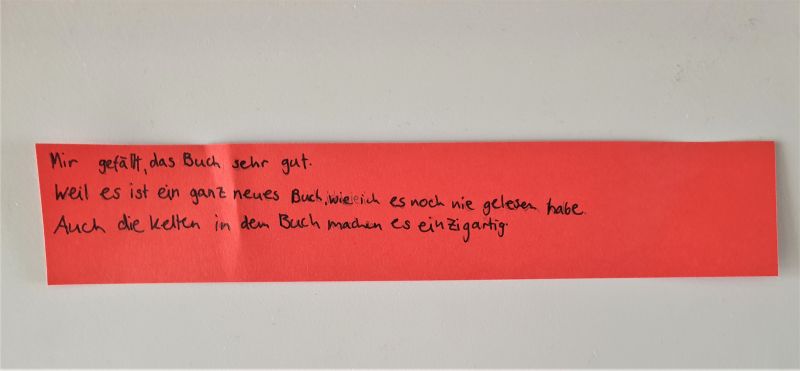 Mir gefällt, das Buch sehr gut.
Weil es ist ein ganz neues Buch, wie ich es noch nie gelesen habe.
Auch die Kelten in dem Buch machen es einzigartig.